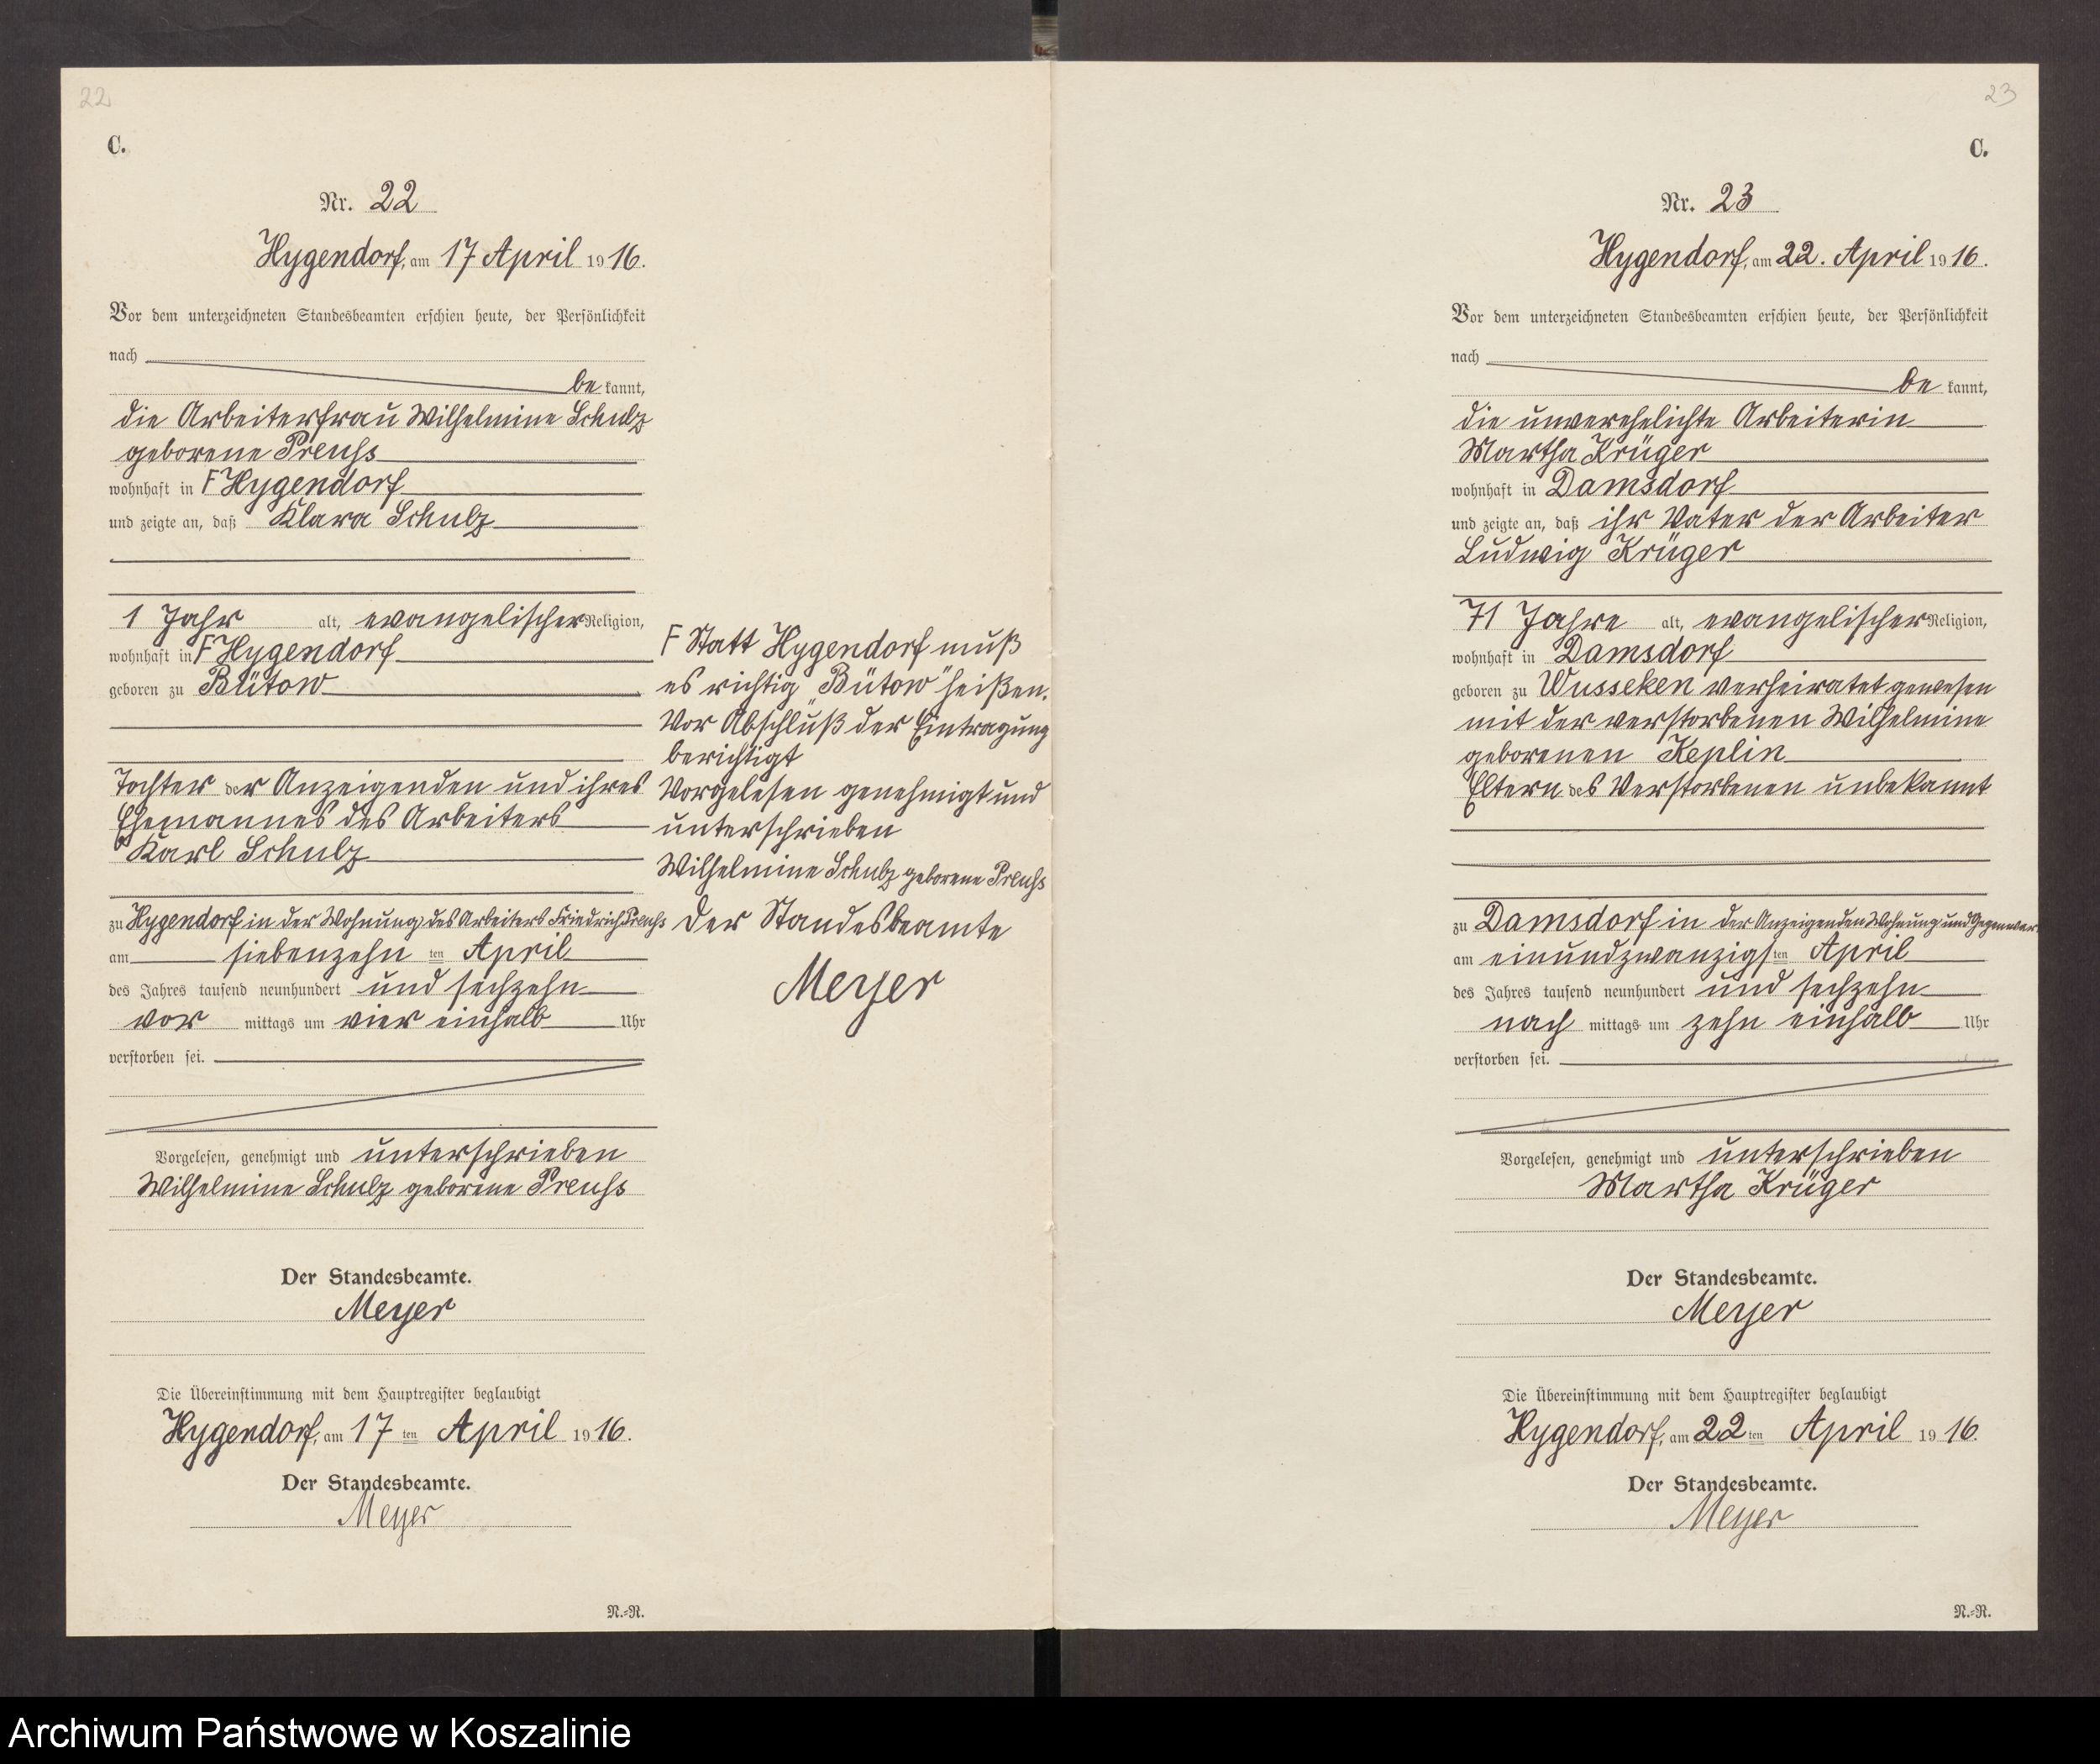 22
C.
Nr. 22
Hygendorf, am 17 April 1916.
Vor dem unterzeichneten Standesbeamten erschien heute, der Persönlichkeit
nach
be kannt,
die Arbeiterfrau Wilhelmine Schulz
geborene Preuhs
wohnhaft in F Hygendorf
und zeigte an, daß Klara Schulz
1 Jahr alt, evangelischer Religion,
wohnhaft in F Hygendorf
geboren zu Bütow
Tochter der Anzeigenden und ihres
Ehemannes des Arbeiters
Karl Schulz
zu Hygendorf in der Wohnung des Arbeiters Friedrich Preuhs
am siebenzehn ten April
des Jahres tausend neunhundert und sechzehn
vor mittags um vier einhalb Uhr
verstorben sei.
Vorgelesen, genehmigt und unterschrieben
Wilhelmine Schulz geborene Preuhs
Der Standesbeamte.
Meyer
Die Übereinstimmung mit dem Hauptregister beglaubigt
Hygendorf, am 17 ten April 1916.
Der Standesbeamte.
Meyer
N.-R.
F Statt Hygendorf muß
es richtig "Bütow" heißen.
Vor Abschluß der Eintragung
berichtigt
Vorgelesen genehmigt und
unterschrieben
Wilhelmine Schulz geborene Preuhs
Der Standesbeamte
Meyer
23
C.
Nr. 23
Hygendorf, am 22. April 1916.
Vor dem unterzeichneten Standesbeamten erschien heute, der Persönlichkeit
nach
be kannt,
die unverehelichte Arbeiterin
Martha Krüger
wohnhaft in Damsdorf
und zeigte an, daß ihr Vater der Arbeiter
Ludwig Krüger
71 Jahre alt, evangelischer Religion,
wohnhaft in Damsdorf
geboren zu Wusseken verheiratet gewesen
mit der verstorbenen Wilhelmine
geborenen Keplin
Eltern des Verstorbenen unbekannt
zu Damsdorf in der Anzeigenden Wohnung und Gegenwar
am einundzwanzigsten April
des Jahres tausend neunhundert und sechzehn
nach mittags um zehn einhalb Uhr
verstorben sei.
Vorgelesen, genehmigt und unterschrieben
Martha Krüger
Der Standesbeamte.
Meyer
Die Übereinstimmung mit dem Hauptregister beglaubigt
Hygendorf, am 22 ten April 1916.
Der Standesbeamte.
Meyer
N.-R.
Archiwum Państwowe w Koszalinie